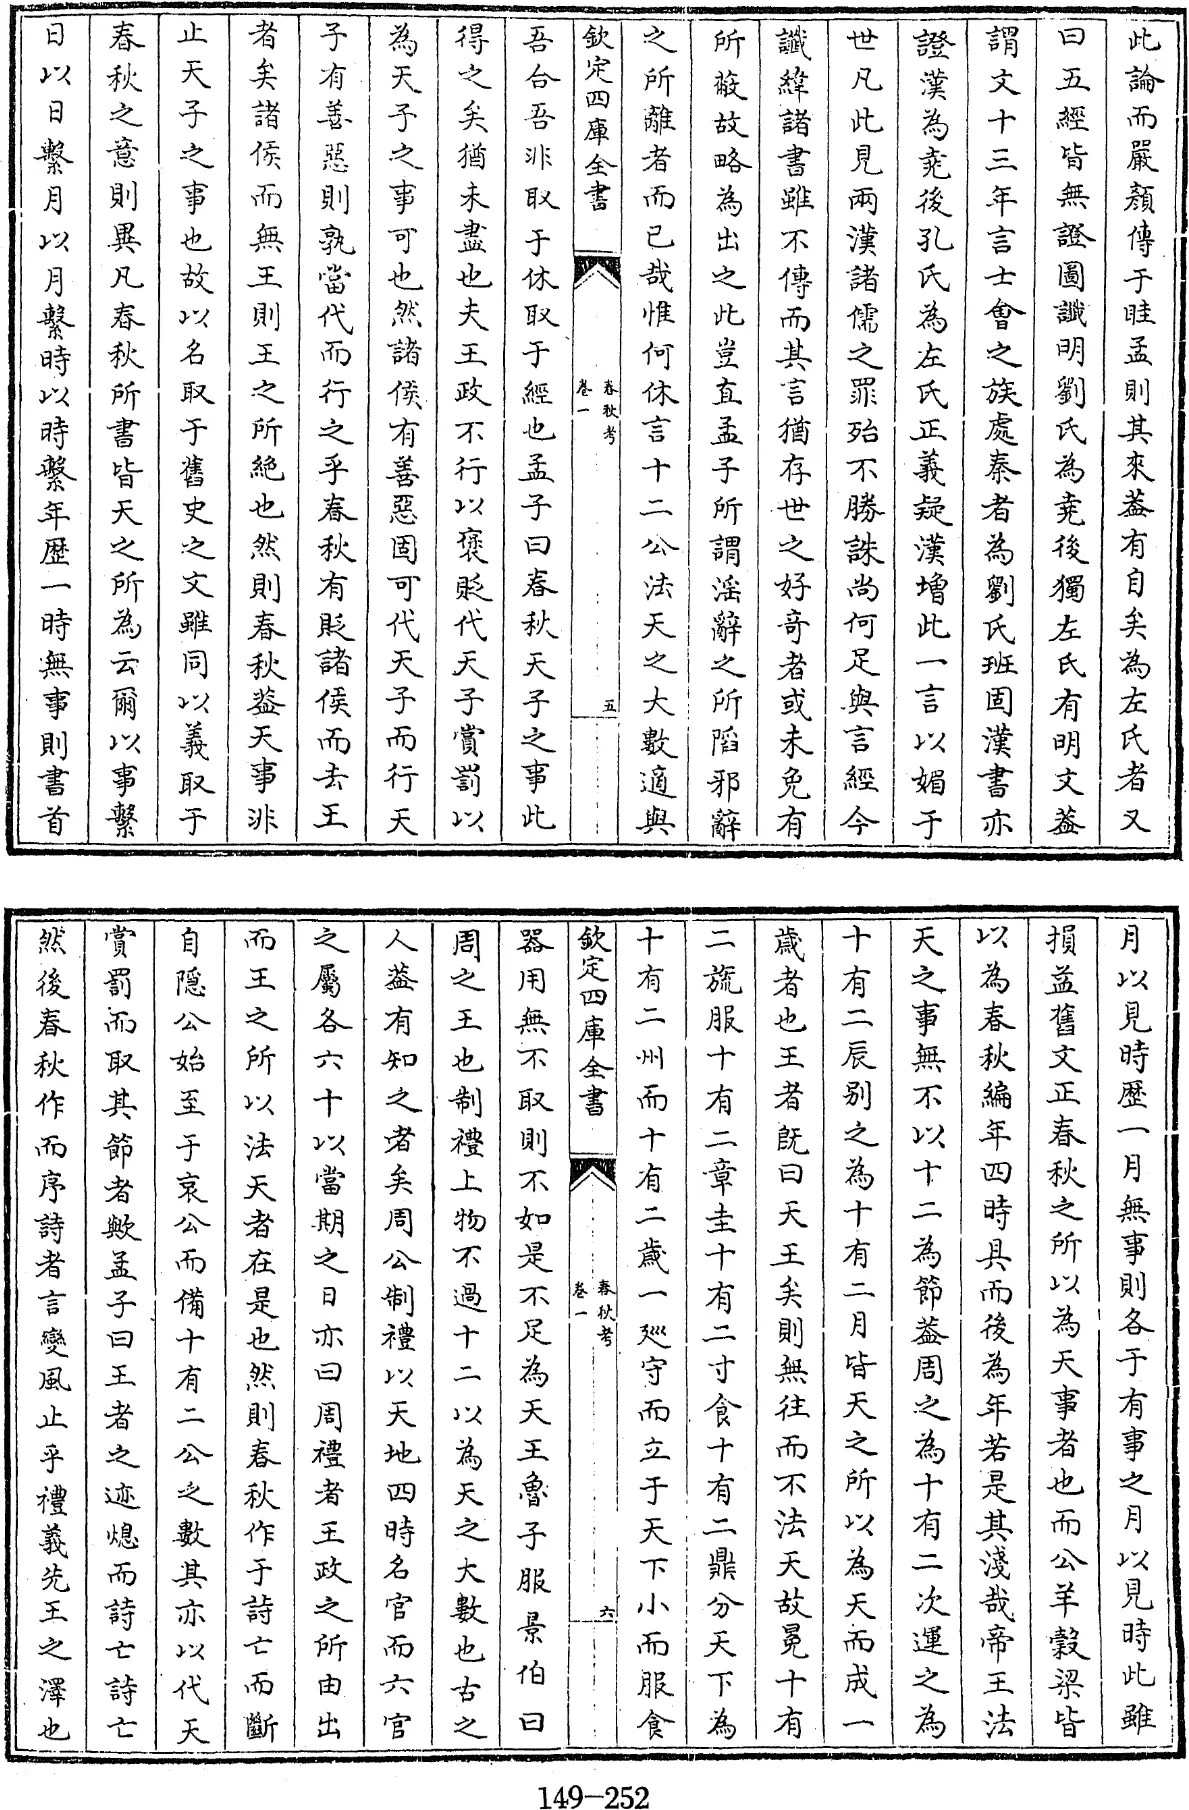 此論而嚴顔傳于眭孟則其來葢有自矣為左氏者又
曰五經皆無證圖讖明劉氏為堯後獨左氏有明文葢
謂文十三年言士會之族處秦者為劉氏班固漢書亦
證漢為堯後孔氏為左氏正義疑漢增此一言以媚于
世凡此見兩漢諸儒之罪殆不勝誅尚何足與言經今
讖緯諸書雖不傳而其言猶存世之好奇者或未免有
所蔽故略為出之此豈直孟子所謂淫辭之所陷邪辭
之所離者而已哉惟何休言十二公法天之大數適與
欽定四庫全書
春秋考
卷一
五
吾合吾非取于休取于經也孟子曰春秋天子之事此
得之矣猶未盡也夫王政不行以褒貶代天子賞罰以
為天子之事可也然諸侯有善惡固可代天子而行天
子有善惡則孰當代而行之乎春秋有貶諸侯而去王
者矣諸侯而無王則王之所絶也然則春秋葢天事非
止天子之事也故以名取于舊史之文雖同以義取于
春秋之意則異凡春秋所書皆天之所為云爾以事繫
日以日繫月以月繫時以時繫年歴一時無事則書首
月以見時歴一月無事則各于有事之月以見時此雖
損益舊文正春秋之所以為天事者也而公羊榖梁皆
以為春秋編年四時具而後為年若是其淺哉帝王法
天之事無不以十二為節葢周之為十有二次運之為
十有二辰别之為十有二月皆天之所以為天而成一
歳者也王者既曰天王矣則無往而不法天故冕十有
二旒服十有二章圭十有二寸食十有二鼎分天下為
十有二州而十有二歳一廵守而立于天下小而服食
欽定四庫全書
春秋考
卷一
六
器用無不取則不如是不足為天王魯子服景伯曰
周之王也制禮上物不過十二以為天之大數也古之
人葢有知之者矣周公制禮以天地四時名官而六官
之屬各六十以當期之日亦曰周禮者王政之所由出
而王之所以法天者在是也然則春秋作于詩亡而斷
自隱公始至于哀公而備十有二公之數其亦以代天
賞罰而取其節者歟孟子曰王者之迹熄而詩亡詩亡
然後春秋作而序詩者言變風止乎禮義先王之澤也
149-252